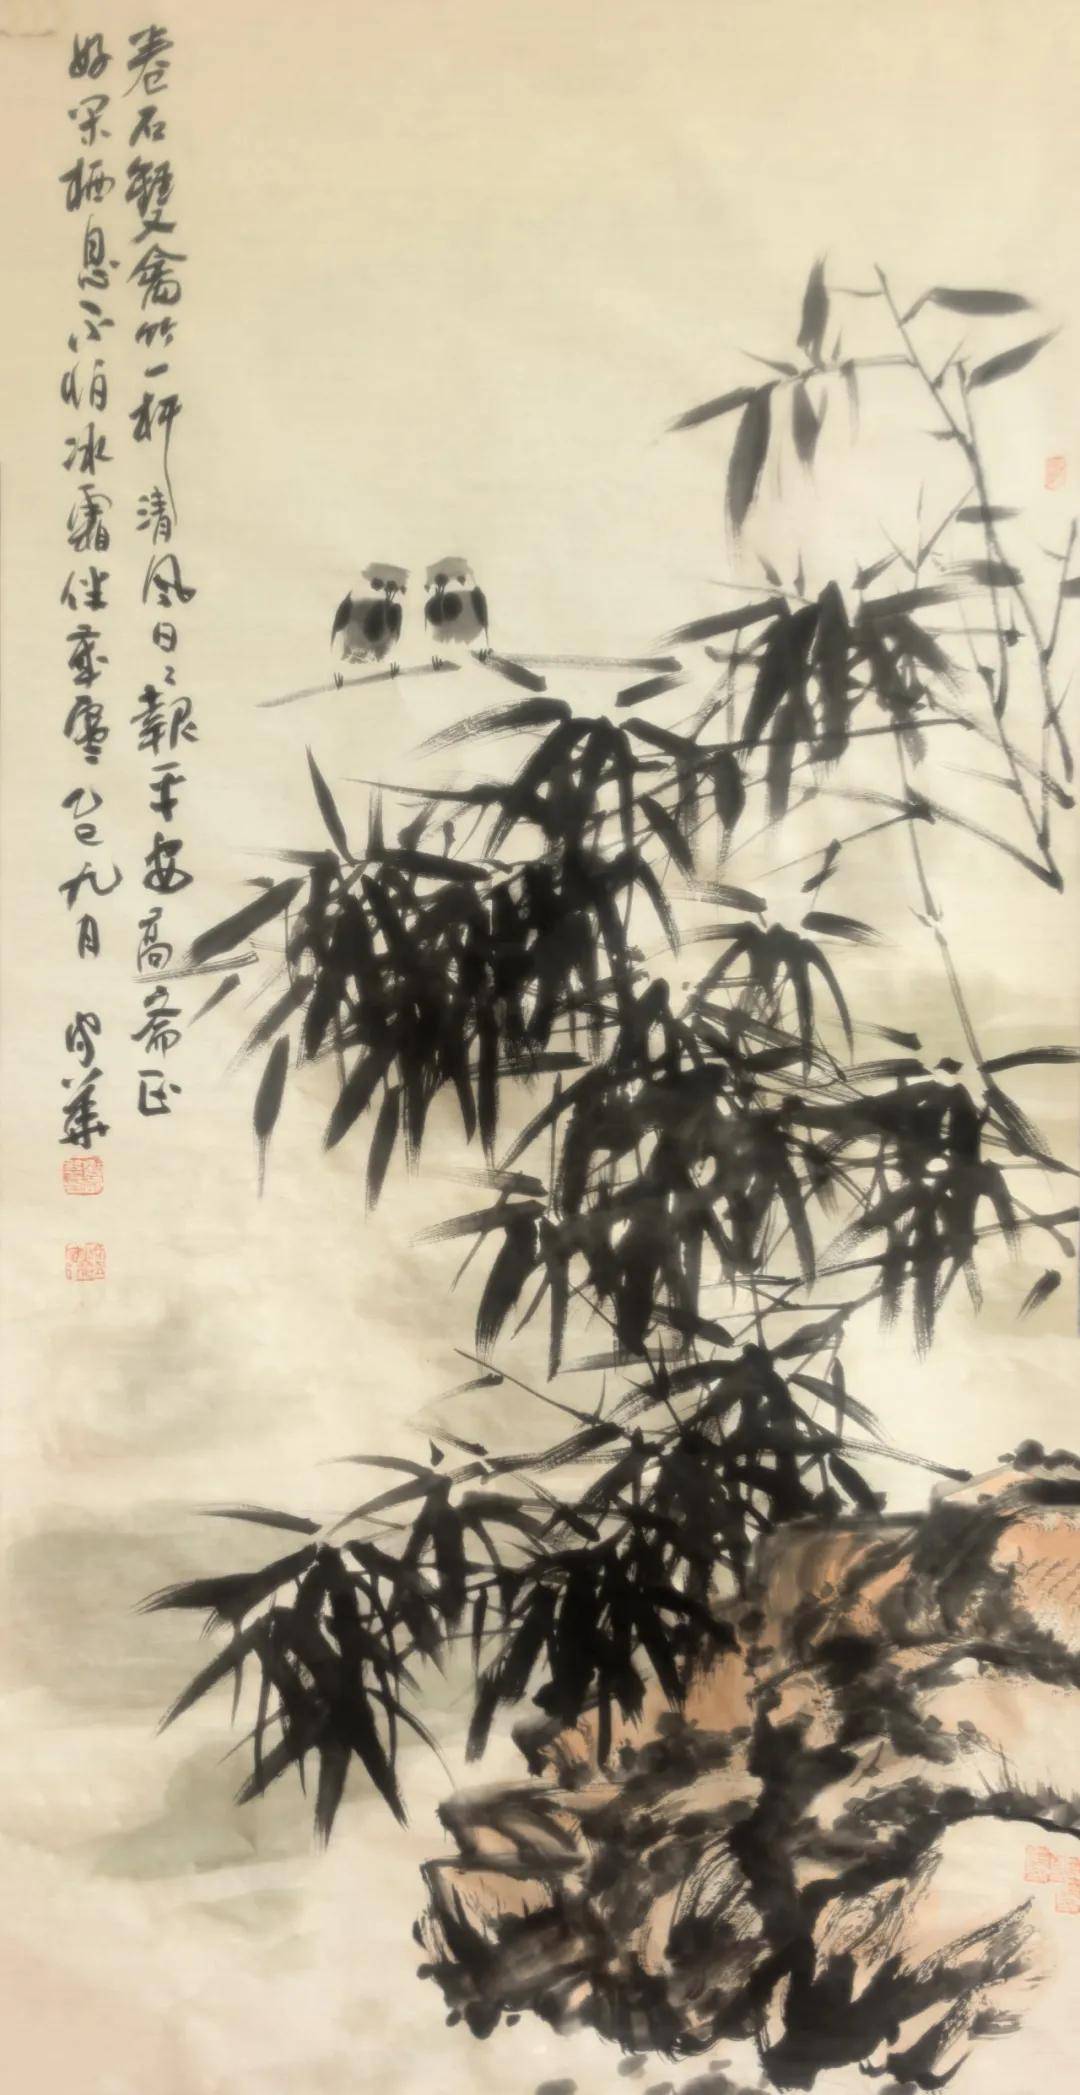 卷石雙禽竹一杆清风日々報平安高斋正
好閑栖息不怕冰霜伴歲寒乙巳九月